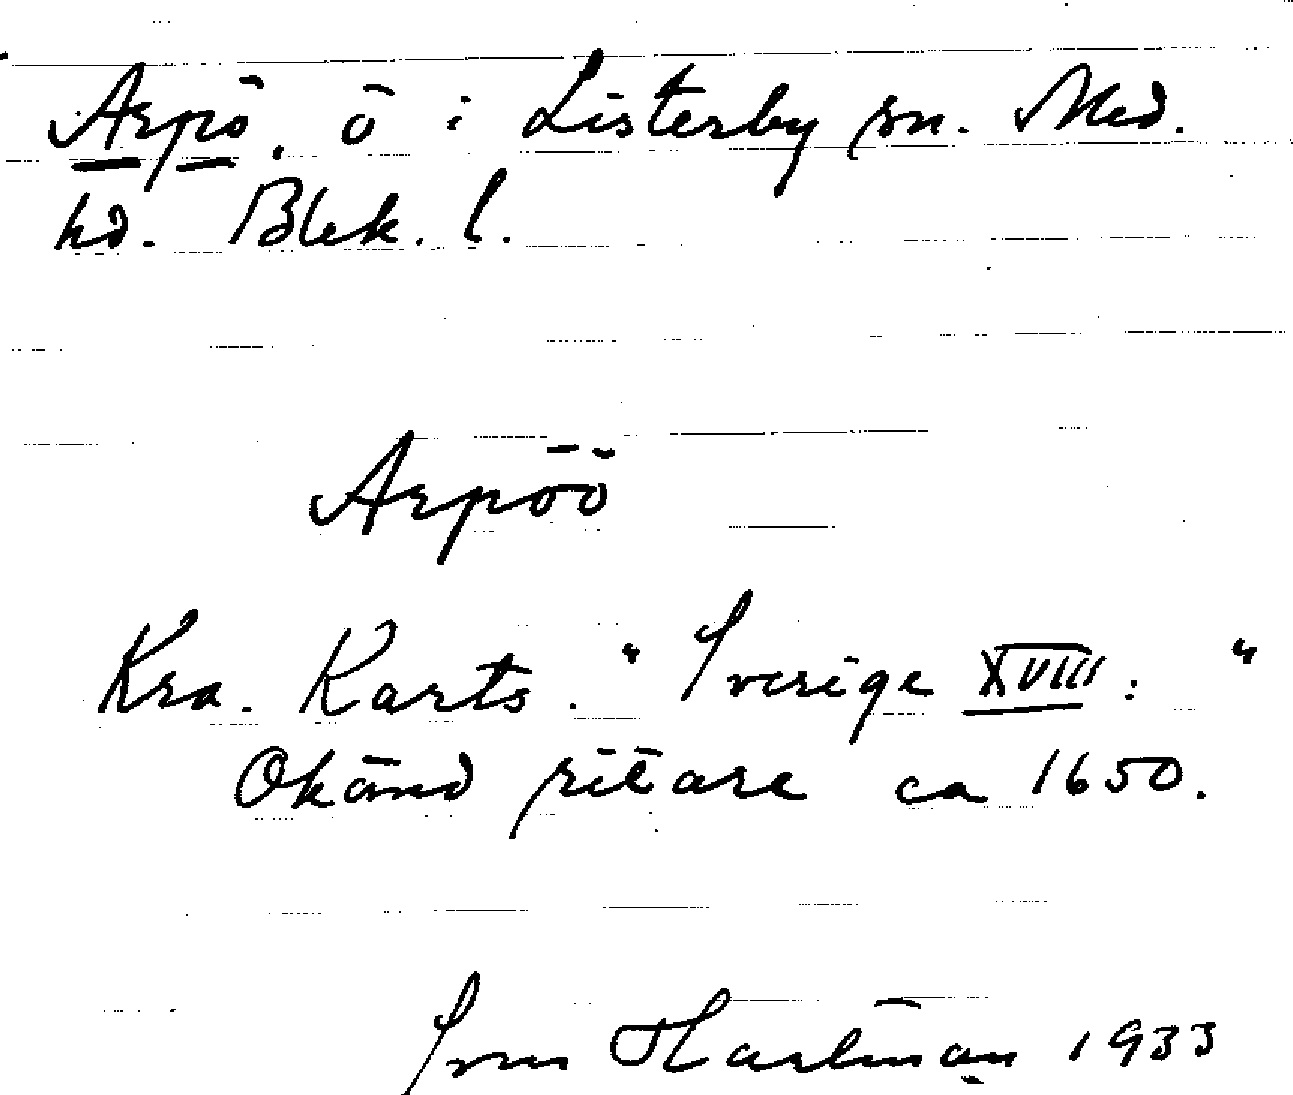 Arpö, ö i Listerby sn. Med.
hd. Blek. l.
Arpöö
Kra. Karts. "Sverige XVIII: "
Okänd ritare ca 1650.
Sven Hartman 1933